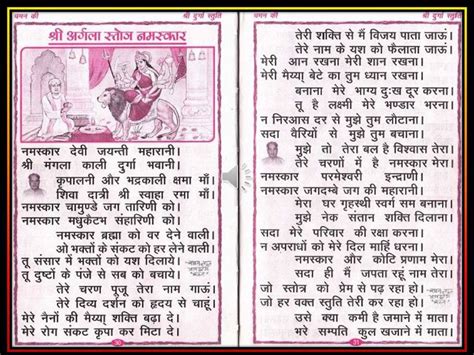 चमन की
श्री दुर्गा स्तुति
श्री अर्गला स्तोत्र नमस्कार
नमस्कार देवी जयन्ती महारानी।
श्री मंगला काली दुर्गा भवानी।
कृपालनी और भद्रकाली क्षमा माँ।
शिवा दात्री श्री स्वाहा रमा माँ।
नमस्कार चामुण्डे जग तारिणी को।
नमस्कार मधुकैटभ संहारिणी को।
नमस्कार ब्रह्मा को वर देने वाली।
ओ भक्तों के संकट को हर लेने वाली।
तू संसार में भक्तों को यश दिलाये।
तू दुष्टों के पंजे से सब को बचाये।
तेरे चरण पूजू तेरा नाम गाऊं।
तेरे दिव्य दर्शन को हृदय से चाहूं।
मेरे नैनों की मैय्या शक्ति बढ़ा दे।
मेरे रोग संकट कृपा कर मिटा दे।
30
चमन की
श्री दुर्गा स्तुति
तेरी शक्ति से मैं विजय पाता जाऊं।
तेरे नाम के यश को फैलाता जाऊं।
मेरी आन रखना मेरी शान रखना।
मेरी मैय्या बेटे का तुम ध्यान रखना।
बनाना मेरे भाग्य दुःख दूर करना।
तू है लक्ष्मी मेरे भण्डार भरना।
न निरआस दर से मुझे तुम लौटाना।
सदा वैरियों से मुझे तुम बचाना।
मुझे तो तेरा बल है विश्वास तेरा।
तेरे चरणों में है नमस्कार मेरा।
नमस्कार परमेश्वरी इन्द्राणी।
नमस्कार जगदम्बे जग की महारानी।
मेरा घर गृहस्थी स्वर्ग सम बनाना।
मुझे नेक संतान शक्ति दिलाना।
सदा मेरे परिवार की रक्षा करना।
न अपराधों को मेरे दिल माहिं धरना।
नमस्कार और कोटि प्रणाम मेरा।
सदा ही मैं जपता रहूं नाम तेरा।
जो स्तोत्र को प्रेम से पढ़ रहा हो।
जो हर वक्त स्तुति तेरी कर रहा हो।
उसे क्या कमी है जमाने में माता।
भरे सम्पति कुल खजाने में माता।
31